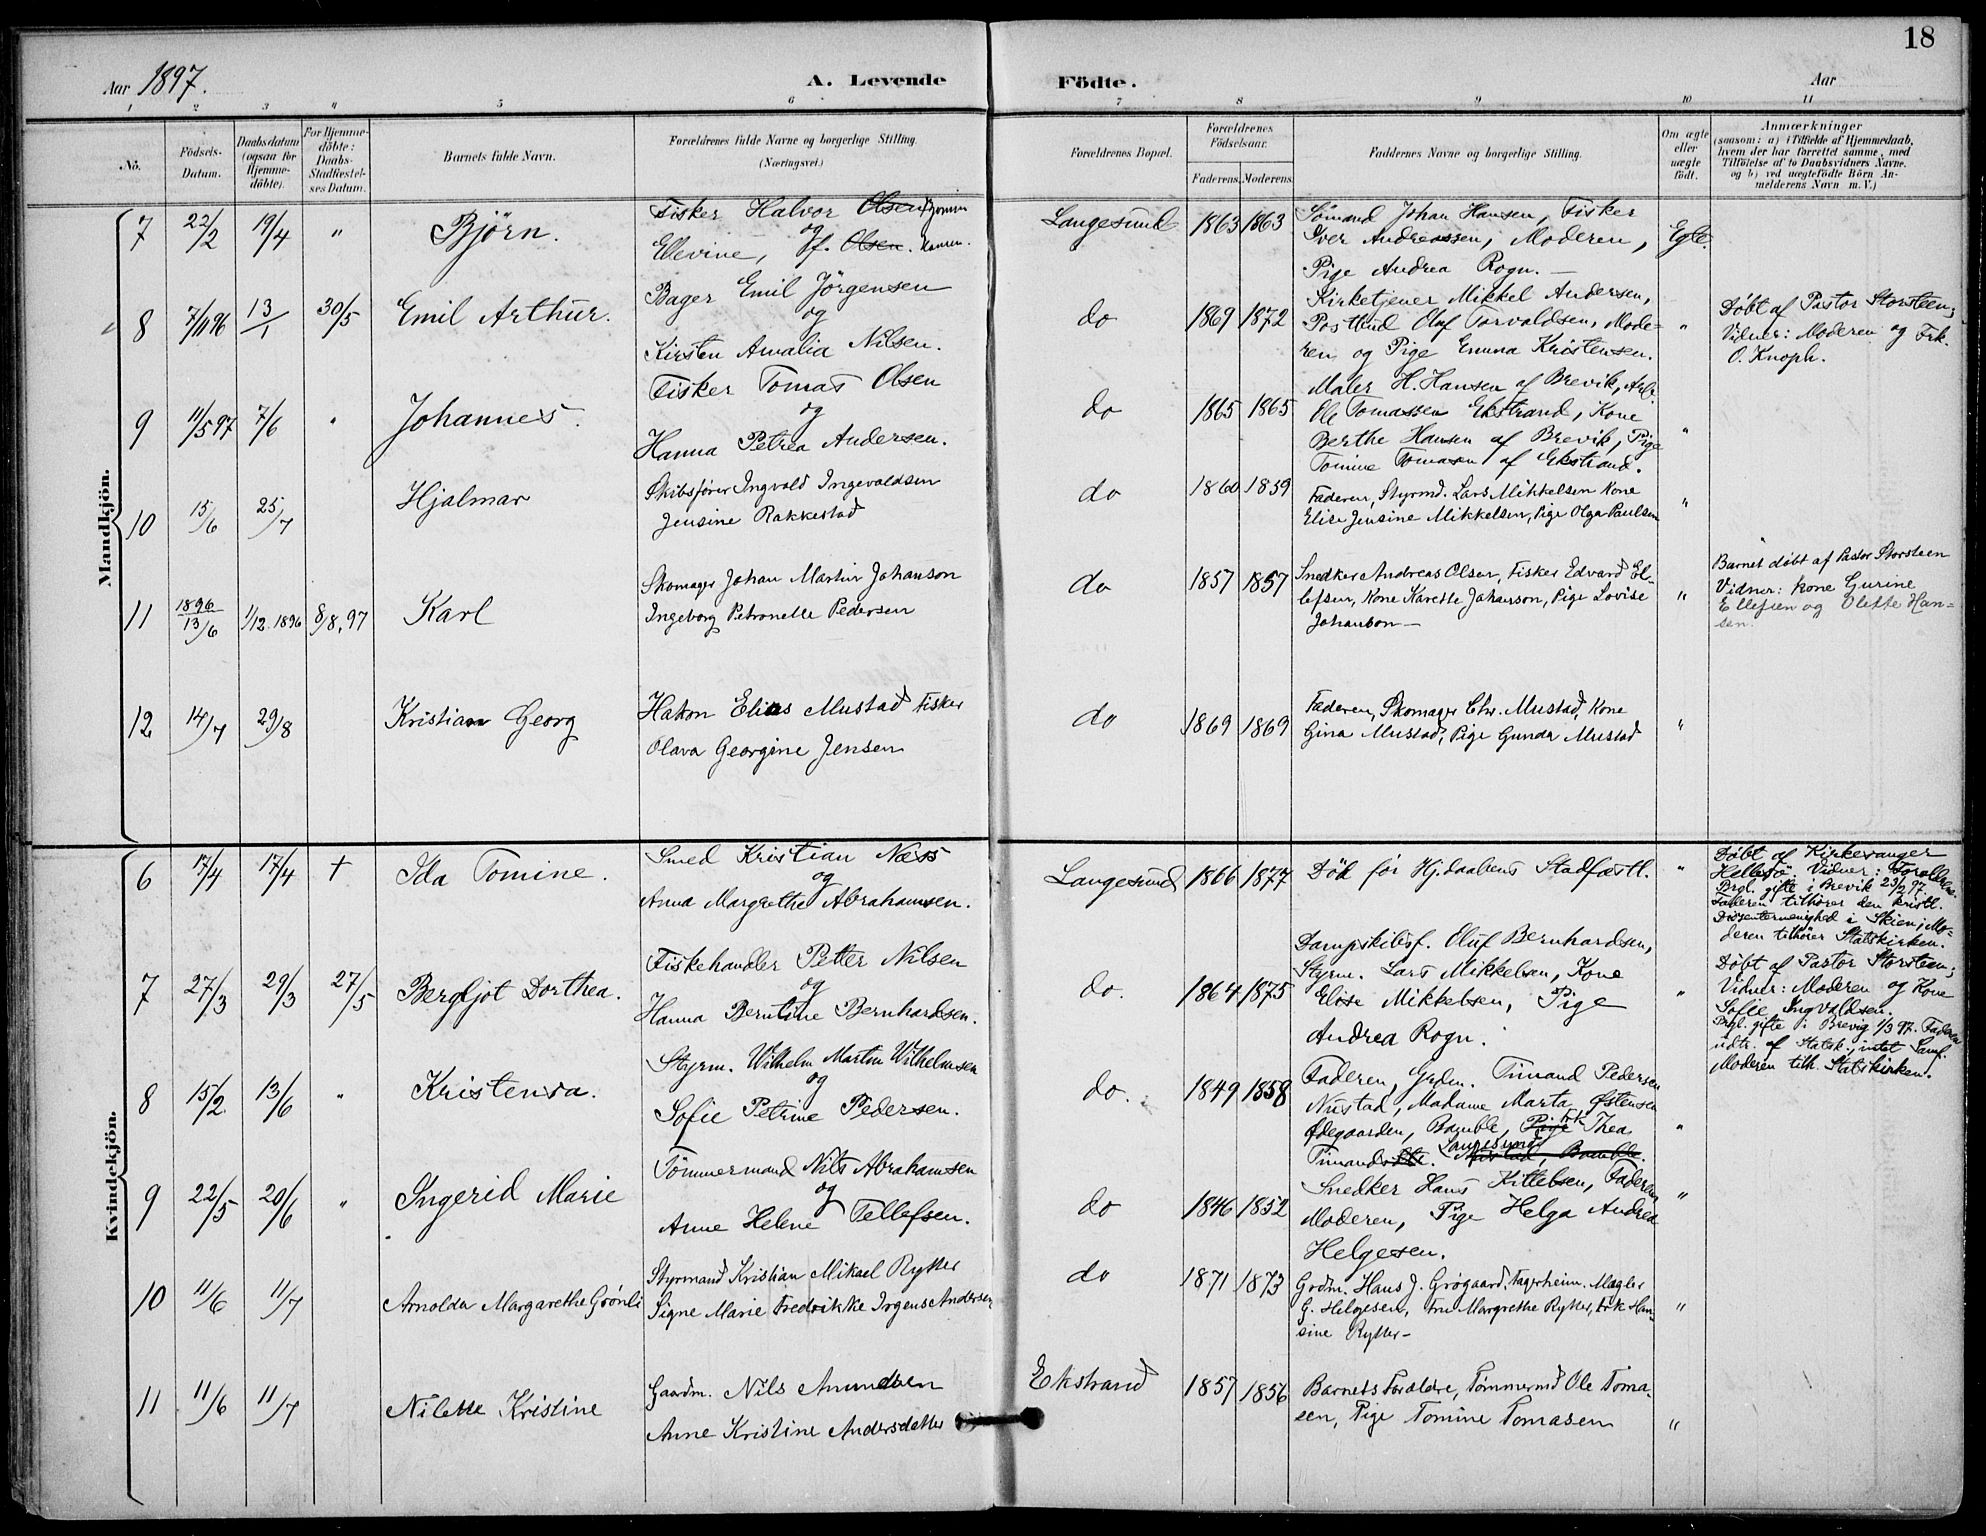 18
Aar 1897.
A. Levende Födte.
Aar
1 2 3 " 5 6 7 8 9 10 11
No.
Födsels-Datum.
Daabsdatum (ogsaa for Hjemme-döbte).
For Hjemme-döbte: Daabs-Stadfæstel-ses Datum.
Barnets fulde Navn.
Forældrenes fulde Navne og borgerlige Stilling. (Næringsvei.)
Forældrenes Bopæl.
Forældrenes Födselsaar.
Faderens. Moderens.
Faddernes Navne og borgerlige Stilling.
Om ægte eller uægte födt.
Anmærkninger
(saasom: a) i Tilfælde af Hjemmedaab,
hvem der har forrettet samme, med
Tilföielse af to Daabsvidners Navne,
og b) ved uægtefödte Börn An-
melderens Navn m. V.)
Mandkjön.
7 22/2 19/4 " Bjørn.
Fisker Halvor Olsen
og
Ellevine, f. Olsen. Hansen.
Langesund 1863 1863
Sømand Johan Hansen, Fisker
Iver Andreassen, Moderen,
Pige Andrea Rogn. —
Egte.
8 7/11 96 13/1 30/5 Emil Arthur.
Bager Emil Jörgensen
og
Kirsten Amalia Nilsen.
do 1869 1872
Kirketjener Mikkel Andersen,
Postbud Olaf Torvaldsen, Mode=
ren og Pige Emma Kristensen.
"
Døbt af Pastor Storsteen;
Vidner: Moderen og Frk.
O. Knoph.
9 11/5 97 7/6 " Johannes.
Fisker Tomas Olsen
og
Hanna Petrea Andersen.
do 1865 1865
Maler H. Hansen af Brevik, Arb.
Ole Tomassen Ekstrand, Kone
Berthe Hansen af Brevik, Pige
Tomine Tomasen af Ekstrand.
"
10 15/6 25/7 Hjalmar
Skibsfører Ingvald Ingevaldsen
Jensine Rakkestad
do 1860 1859
Faderen, Styrmd. Lars Mikkelsen Kone
Elise Jensine Mikkelsen, Pige Olga Paulsen
"
11 1896 13/6 1/12 1896 8/8, 97 Karl
Skomager Johan Martin Johanson
Ingeborg Petronelle Pedersen
do 1857 1857
Snedker Andreas Olsen, Fisker Edvard El-
lefsen, Kone Karette Johanson, Pige Lovise
Johanson —
"
Barnet døbt af Pastor Storsteen
Vidner: Kone Gurine
Ellefsen og Olette Han=
sen.
12 14/7 29/8 Kristian Georg
Hakon Elias Mustad Fisker
Olava Georgine Jensen
do 1869 1869
Faderen, Skomager Chr. Mustad, Kone
Gina Mustad, Pige Gunda Mustad
"
Kvindekjön.
6 17/4 17/4 + Ida Tomine.
Smed Kristian Næss
og
Anna Margrethe Abrahamsen.
Langesund 1866 1877
Död før Hj.daabens Stadfæstl.
"
Døbt af Kirkesanger
Hellesö. Vidner: Forældrene.
Brgl. gifte i Brevik 23/2 97.
Faderen tilhører den kristl.
Dissentermenighed i Skien; Mo=
deren tilhører Statskirken.
7 27/3 29/3 27/5 Bergljot Dorthea.
Fiskehandler Petter Nilsen
og
Hanna Berntine Bernhardsen.
do. 1864 1875
Dampskibsf. Oluf Bernhardsen,
Styrm. Lars Mikkelsen, Kone
Elise Mikkelsen, Pige
Andrea Rogn.
"
Døbt af Pastor Storsteen;
Vidner: Moderen og Kone
Sofie Ingvaldsen.
Brgl. gifte i Brevig 1/3 97. Faderen
udtr. af Statsk., intet Samf.
Moderen tilh. Statskirken.
8 15/2 13/6 " Kristensa.
Styrm. Wilhelm Martin Wilhelmsen
og
Sofie Petrine Pedersen.
do. 1849 1858
Faderen, Grdm. Timand Pedersen
Nustad, Madame Marta Østensen
Ødegaarden, Bamble, Pige Frk Thea
Timandsen. Langesund Nustad, Bamble.
"
9 22/5 20/6 " Ingerid Marie
Tømmermand Nils Abrahamsen
og
Anne Helene Tellefsen.
do 1846 1852
Snedker Hans Kittelsen, Faderen
Moderen, Pige Helga Andrea
Helgesen.
"
10 11/6 11/7 Arnolda Margarethe Grönli
Styrmand Kristian Mikael Rytter
Signe Marie Fredrikke Irgens Andersen
do 1871 1873
Grdm. Hans J. Grögaard. Fagerheim. Mægler
G. Helgesen, Fru Margrethe Rytter, Frk Han-
sine Rytter —
"
11 11/6 11/7 Nilette Kristine
Gaardm. Nils Amundsen
Anne Kristine Andersdatter
Ekstrand 1857 1856
Barnets Forældre, Tømmermd Ole Toma-
sen, Pige Tomine Tomasen
"